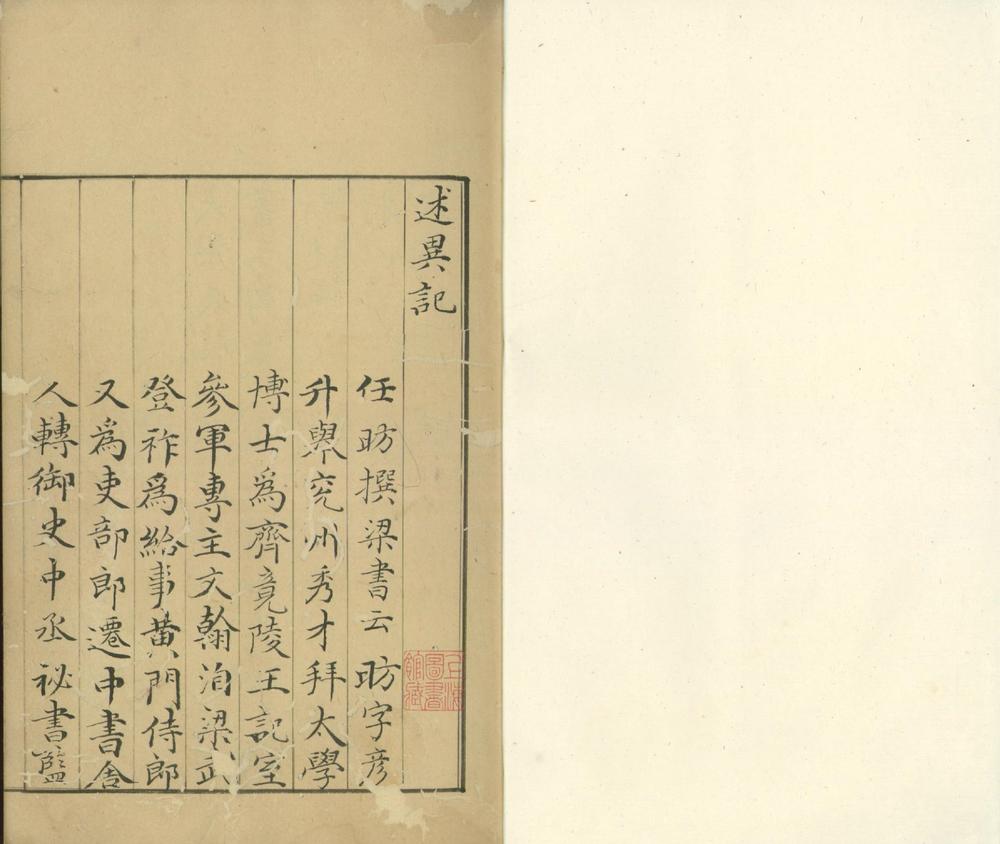 述異記
任昉撰梁書云昉字彦
升舉兖州秀才拜太學
博士爲齊竟陵王記室
參軍專主文翰洎梁武
登祚爲給事黄門侍郎
又爲吏部郎遷中書舍
人轉御史中丞祕書監
上海圖書館藏